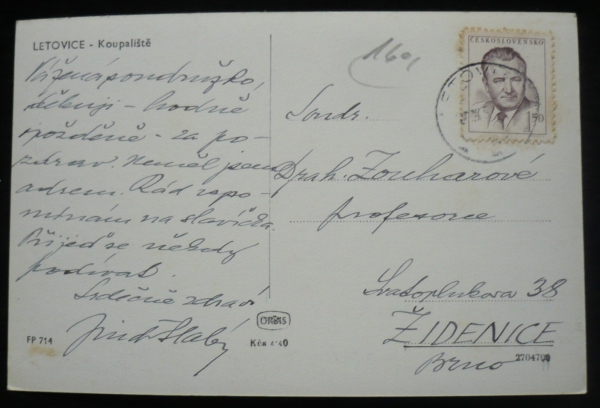 LETOVICE - Koupaliště
Vážená soudružko,
děkuji - hodně
opožděně - za po-
zdrav. Neměl jsem
adresu. Rád vzpo-
mínám na slavíčka.
Přijeď se někdy
podívat.
Srdečně zdraví
Jind. Slabý
FP 714
ORBIS
Kčs
1601
ČESKOSLOVENSKO
1.50
Soudr.
Drah. Zouharové
profesorce
Svatoplukova 38
ŽIDENICE
Brno
2704700